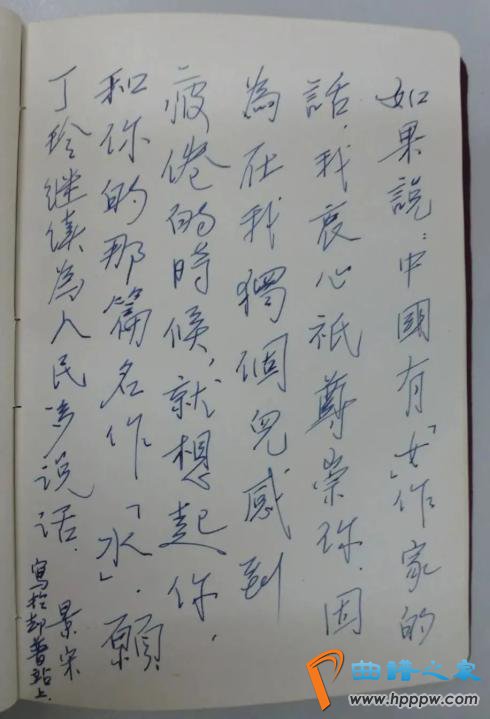 如果說：中國有「女」作家的
話，我衷心祇尊崇你．因
為在我獨個兒感到
疲倦的時候，就想起你，
和你的那篇名作「水」．願
丁玲继续為人民多说话．
景宋
寫於普站上．
曲谱之家
www.hpppw.com